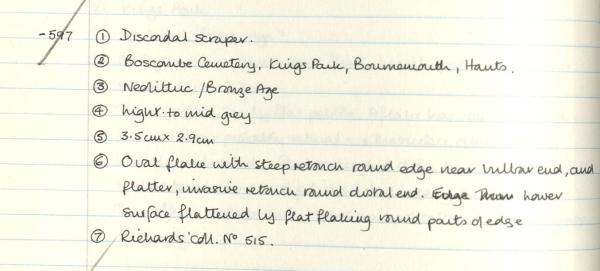 -597 ① Discoidal scraper.
② Boscombe Cemetery, Kings Park, Bournemouth, Hants.
③ Neolithic / Bronze Age
④ Light to mid grey
⑤ 3.5cm x 2.9cm
⑥ Oval flake with steep retouch round edge near bulbar end, and
flatter, invasive retouch round distal end. Edge lower
surface flattened by flat flaking round parts of edge
⑦ Richards' Coll. No 515.